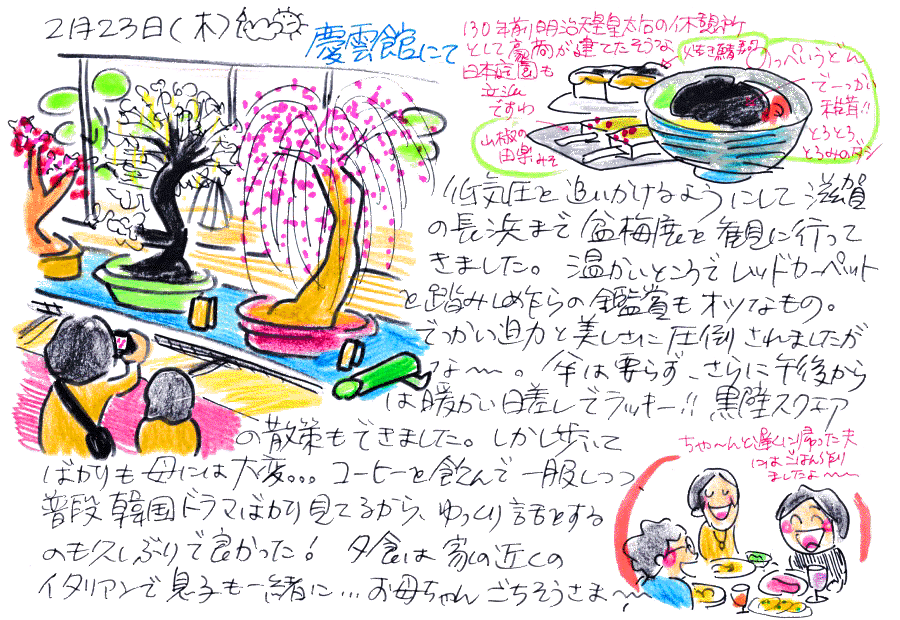 2月23日(木)
慶雲館にて
130年前明治天皇皇太后の休憩所
として豪商が建てたそうな
日本庭園も
立派
ですわ
焼き鯖寿司
のっぺいうどん
でーっかい
椎茸!!
とろとろ
とろみのダシ
山椒の
田楽みそ
低気圧を追いかけるようにして滋賀
の長浜まで盆梅展を観に行って
きました。温かいところでレッドカーペット
を踏みしめながらの鑑賞もオツなもの。
でっかい迫力と美しさに圧倒されましたが
な〜〜。傘は要らず、さらに午後から
は暖かい日差しでラッキー!!黒壁スクエア
の散策もできました。しかし歩いて
ばかりも母には大変。。。コーヒーを飲んで一服しつつ
普段韓国ドラマばかり見てるから、ゆっくり話をする
のも久しぶりで良かった!夕食は家の近くの
イタリアンで息子も一緒に...お母ちゃんごちそうさま〜
ちゃ〜んと遅くに帰った夫
にはごはん作り
ましたよ〜〜